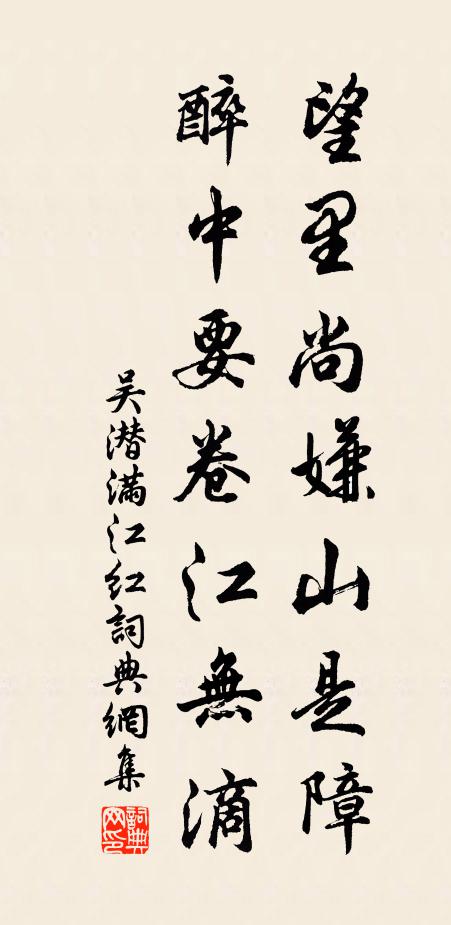 望里尚嫌山是障
醉中要卷江無滴
吴潜滿江红詞典網集
詞典网印